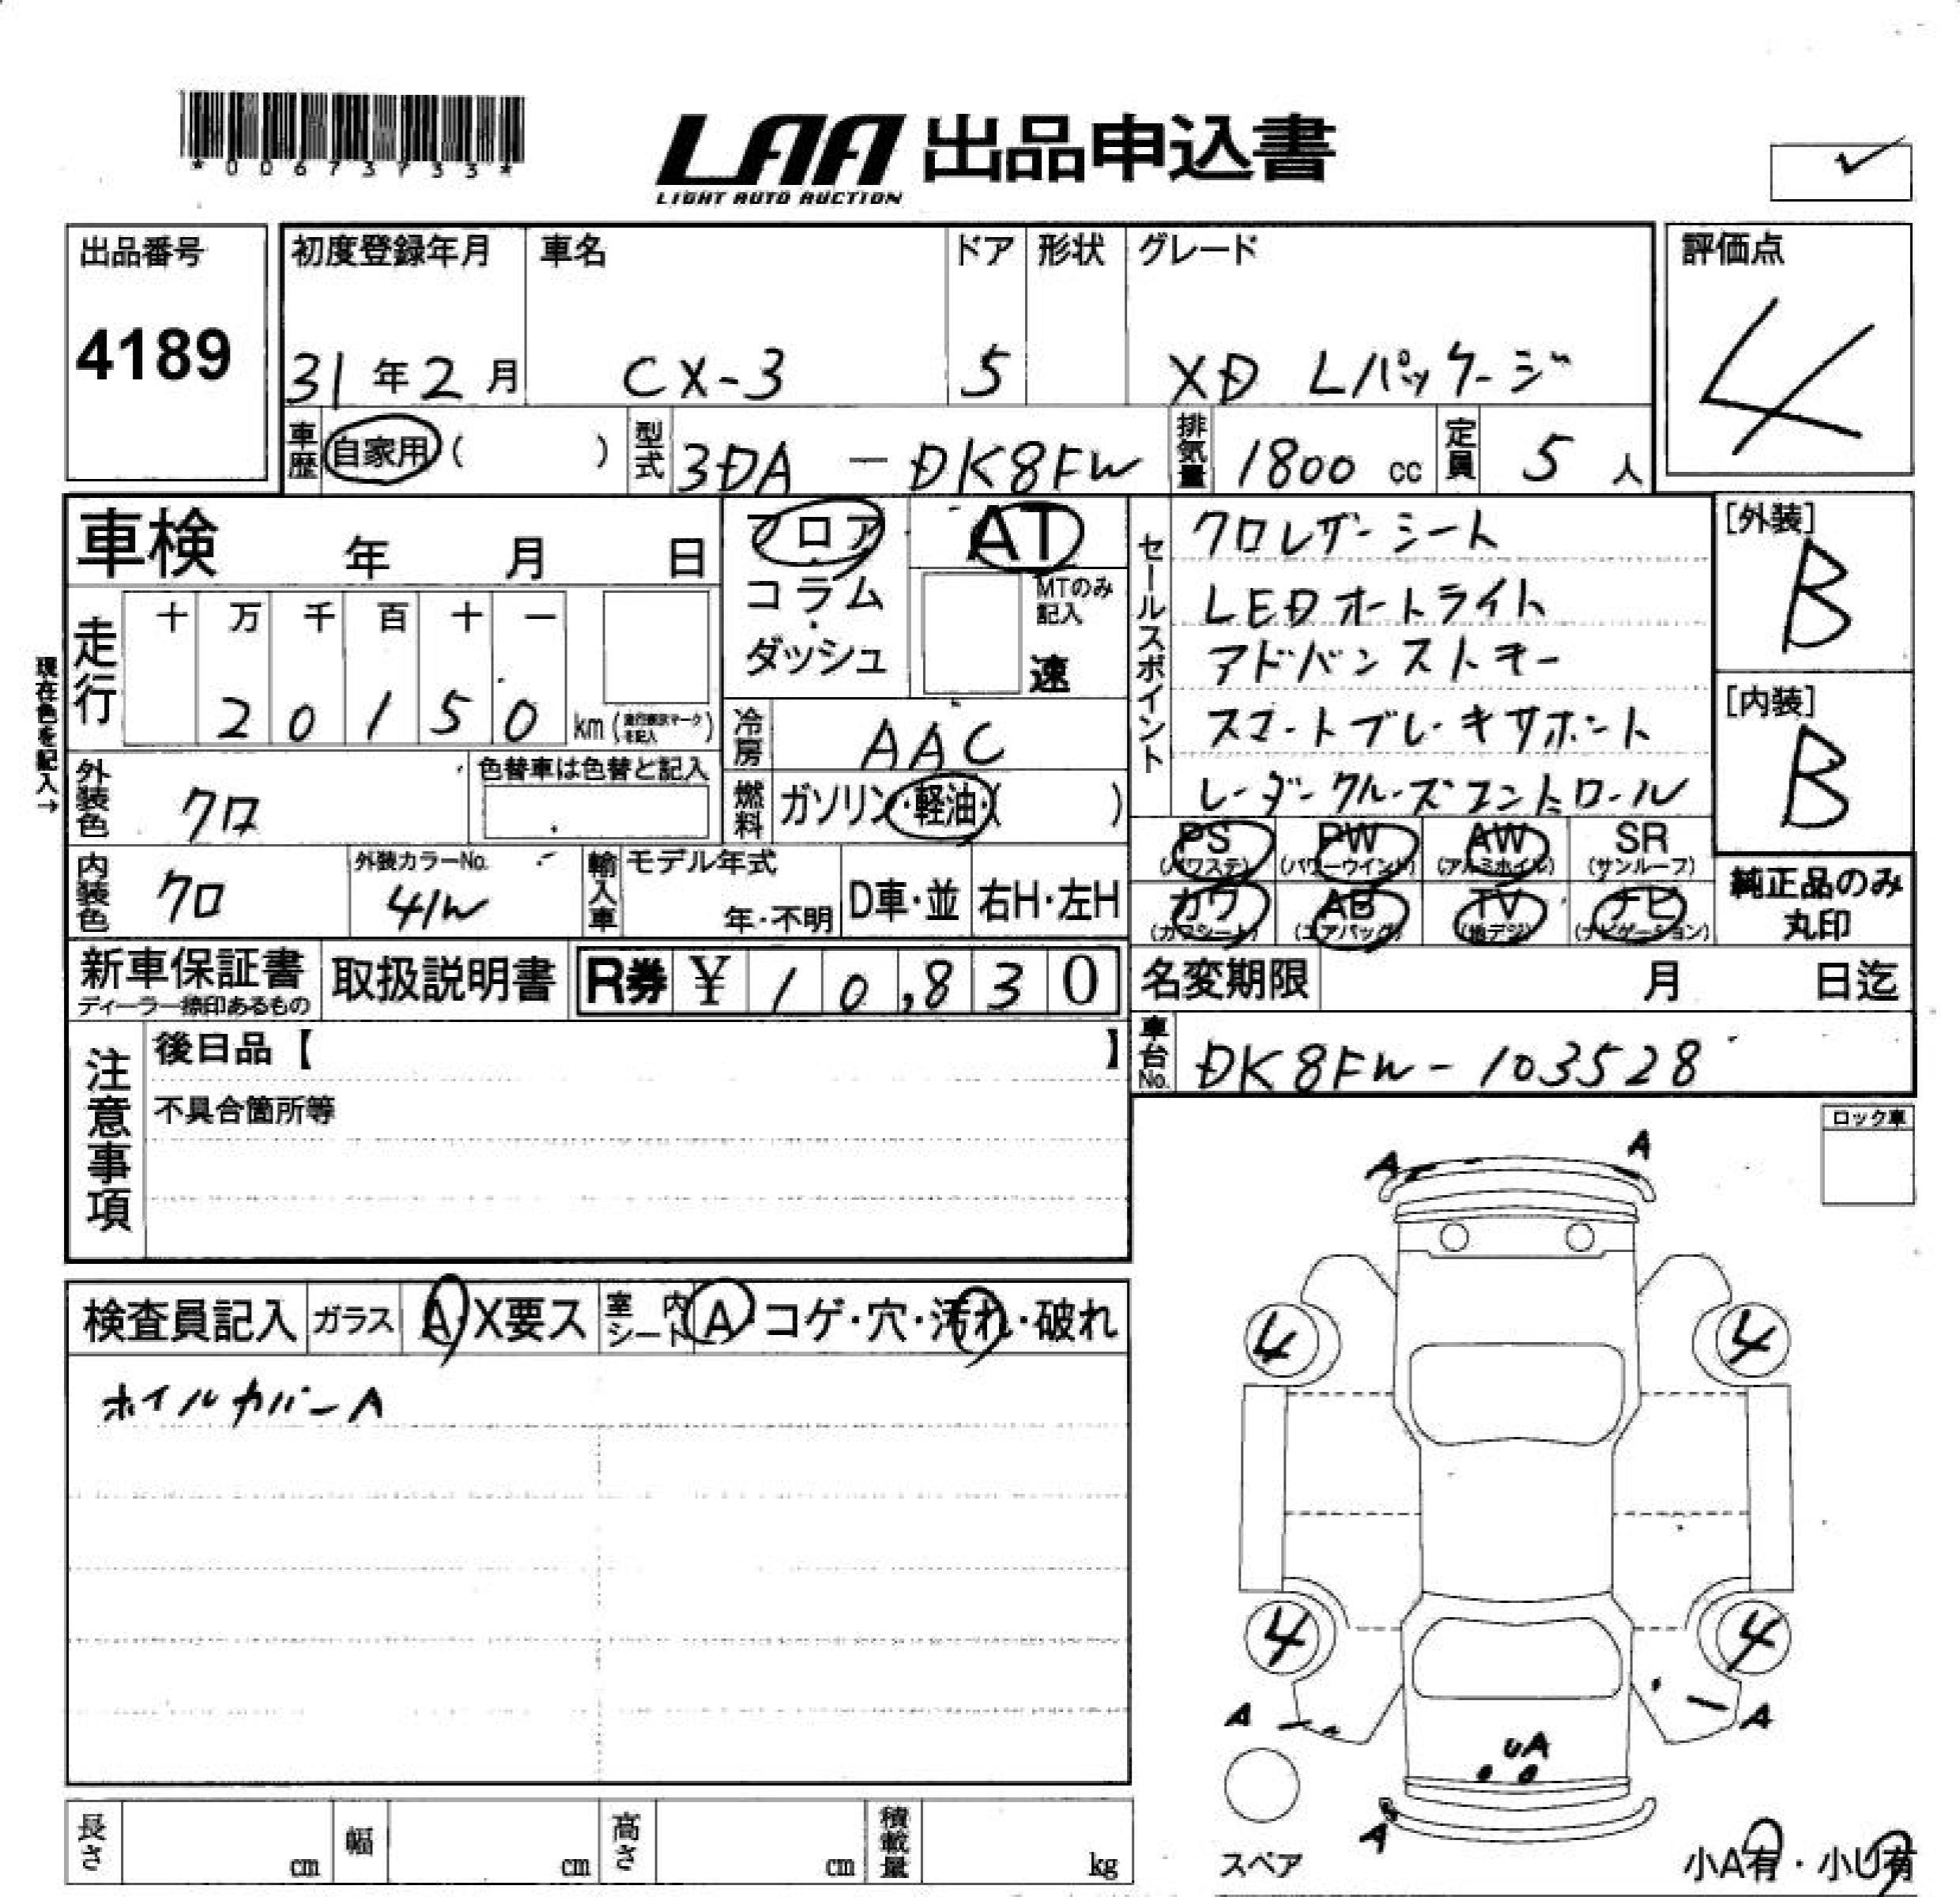 *00673733*
LAA 出品申込書
LIGHT AUTO AUCTION
出品番号 初度登録年月 車名 ドア 形状 グレード 評価点
4189 31年2月 CX-3 5 XD Lパッケージ 4
車歴 自家用( ) 型式 3DA-DK8FW 排気量 1800 cc 定員 5 人
車検 年 月 日
フロア・コラム・ダッシュ
AT
MTのみ記入
速
セールスポイント
クロレザーシート
LEDオートライト
アドバンストキー
スマートブレーキサポート
レーダークルーズコントロール
[外装]
B
[内装]
B
現在色を記入→
走行 十 万 千 百 十 一
20150 km(走行表示マークを記入)
冷房 AAC
外装色 クロ 色替車は色替と記入
燃料 ガソリン・軽油・( )
内装色 クロ 外装カラーNo. 41W 輸入車 モデル年式 年・不明 D車・並 右H・左H
PS (パワステ) PW (パワーウインド) AW (アルミホイル) SR (サンルーフ)
カワ (カワシート) AB (エアバッグ) TV (地デジ) ナビ (ナビゲーション)
純正品のみ丸印
新車保証書 ディーラー捺印あるもの 取扱説明書 R券 ¥ 10,830
名変期限 月 日迄
車台No. DK8FW-103528
注意事項
後日品【 】
不具合箇所等
ロック車
検査員記入 ガラス A・X要ス 室内シート A・コゲ・穴・汚れ・破れ
ホイルカバーA
A A
4 4
4 4
A A
UA
A
スペア
小A有・小U有
長さ cm 幅 cm 高さ cm 積載量 kg